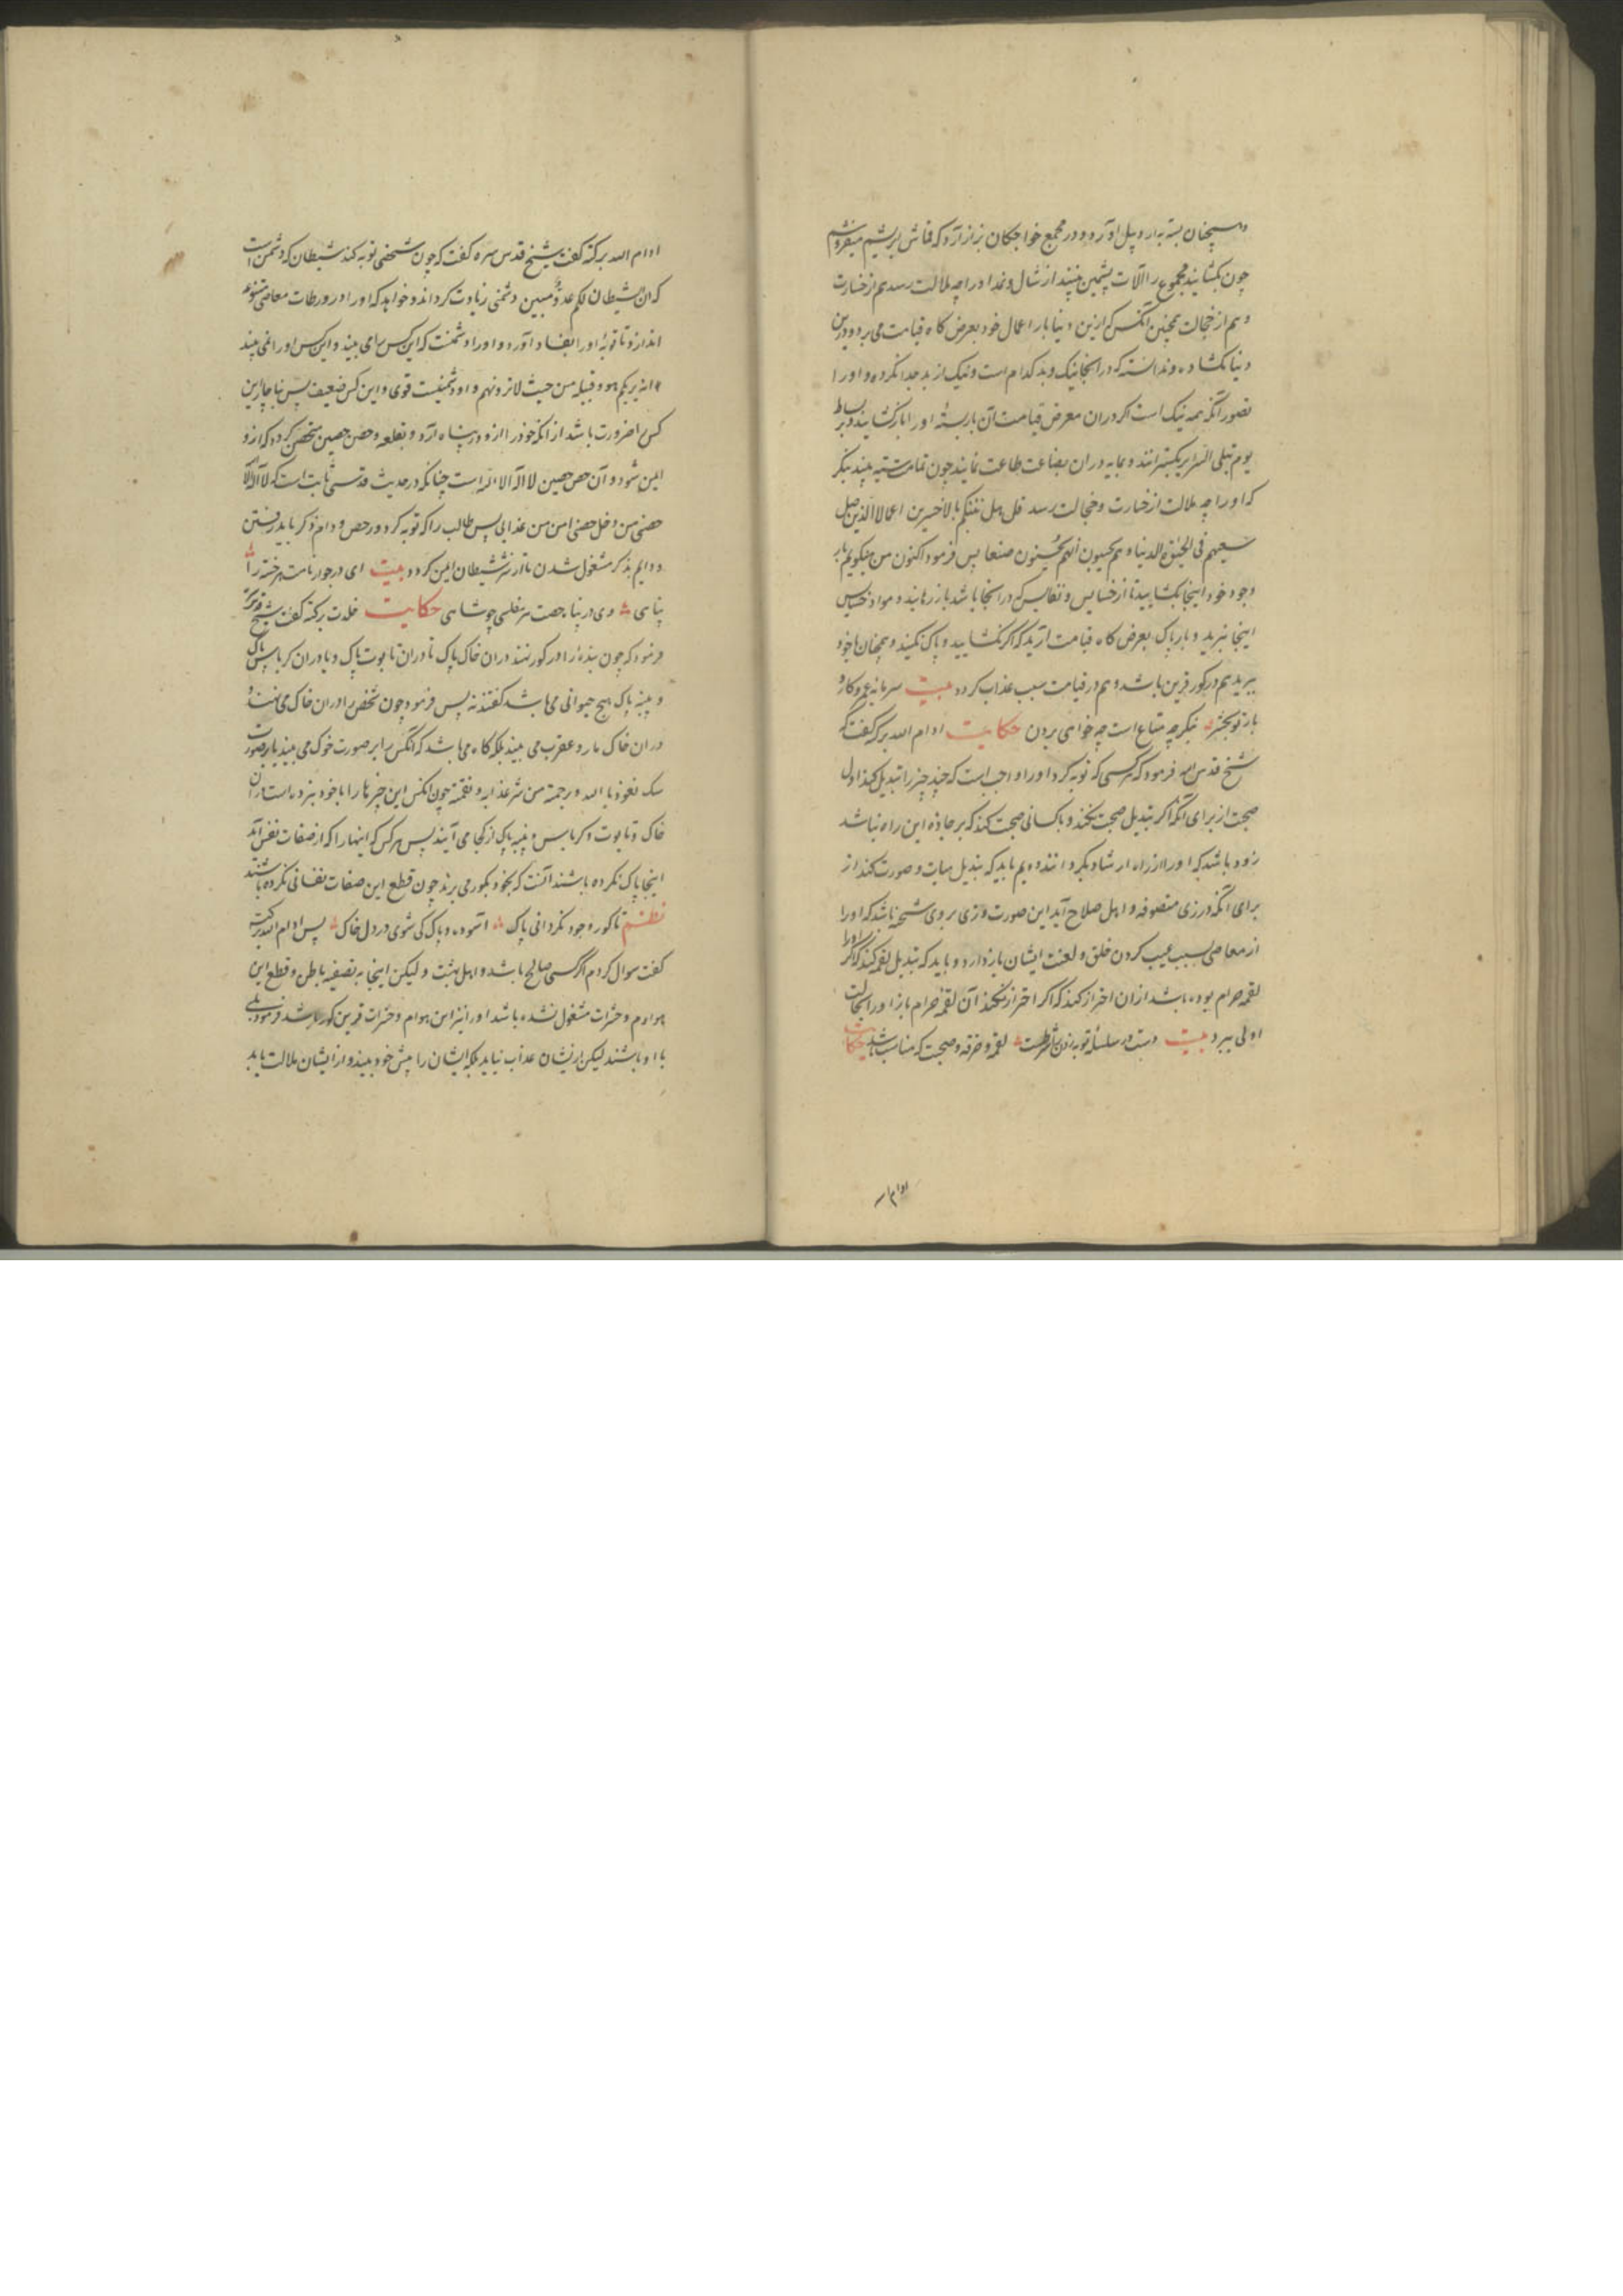 همچنان بسته به اردبیل آورد و در مجمع خواجگان بزاز آرد که قماش ابریشم میفروشم
چون بکشایند مجموع را آلات پشمین بینند از شال و نمد او را چه ملالت رسد هم از خسارت
و هم از خجالت همچنین آنکس که ازین دنیا بار اعمال خود بعرض کاه قیامت می برد و درین
دنیا نکشاده و ندانسته که در انجا نیک و بد کدام است و نیک از بد جدا نکرده و او را
تصور آنکه همه نیک است اکر در ان معرض قیامت آن بار بسته او را باز کشایند و بر بساط
یوم تبلی السرایر بکسترانند و بمایه در ان بضاعت طاعت نمایند چون تمامت بیند بنکر
که او را چه ملالت از خسارت و خجالت رسد قل هل ننبئکم بالاخسرین اعمالا الذین ضل
سعیهم فی الحیوة الدنیا و هم یحسبون انهم یحسنون صنعا پس فرمود اکنون من میکویم بار
وجود خود اینجا بکشایید تا از خسایس و نفایس که در انجا باشد باز رهانید و مواد خسایس
اینجا ببرید و بار پاک بعرض کاه قیامت آرید که اکر نکشایید و پاک نکنید و همچنان با خود
ببرید هم در کور قرین باشد و هم در قیامت سبب عذاب کردد بیت سرمایه عمر و کار و
بار تو بجز بنکر چه متاع است چه خواهی بردن حکایت ادام الله برکته کفت که
شیخ قدس سره فرمود که هر کسی که توبه کرد او را واجب است که چند چیز را تبدیل کند اول
صحبت از برای آنکه اکر تبدیل صحبت نکند و با کسانی صحبت کند که بر جاده این راه نباشند
زود باشد که او را از راه ارشاد بکردانند دویم باید که تبدیل هیات و صورت کند از
برای آنکه در زی متصوفه و اهل صلاح آید این صورت و زی بر وی شحنه باشد که او را
از معاصی بسبب عیب کردن خلق و لعنت ایشان باز دارد و باید که تبدیل لقمه کند که اکر او را
لقمه حرام بوده باشد از ان احتراز کند که اکر احتراز نکند آن لقمه حرام باز او را بحالت
اولی ببرد بیت دست در سلسله توبه زدن شرطست لقمه و خرقه و صحبت که مناسب باشد حکایت
ادام
ادام الله برکته کفت شیخ قدس سره کفت که چون شخصی توبه کند شیطان که دشمن است
که ان الشیطان لکم عدو مبین دشمنی زیادت کرداند و خواهد که او را در ورطات معاصی متنوعه
اندازد تا توبه او را بفساد آورد و او را دشمنست که این کس را می بیند و این کس او را نمی بیند
انه یریکم هو و قبیله من حیث لا ترونهم و او دشمنیست قوی و این کس ضعیف پس ناچار این
کس را ضرورت باشد از آنکه خود را ازو در پناه آرد و بقلعه و حصن حصین متحصن کردد که ازو
ایمن شود و آن حصن حصین لا اله الا الله است چنانکه در حدیث قدسی ثابت است که لا اله الا الله
حصنی من دخل حصنی امن من عذابی پس طالب را که توبه کرد در حصن دوام ذکر باید رفتن
و دایم بذکر مشغول شدن تا از شر شیطان ایمن کردد بیت ای در جوار نامت هر خسته را
پناهی وی در پناه حصنت هر مفلسی چو شاهی حکایت خلدت برکته کفت شیخ قدس سره
فرمود که چون بنده را در کور نهند در ان خاک پاک تا در ان تابوت پاک و یا در ان کرباس پاک
و پنبه پاک هیچ حیوانی می باشد کفتند نه پس فرمود چون شخص را در ان خاک می نهند و
در ان خاک مار و عقرب می بیند بلکه کاه می باشد که آنکس را بر صورت خوک می بیند یا بر صورت
سک نعوذ بالله و رحمته من شر عذابه و نقمته چون آنکس این چیزها را با خود نبرده است در ان
خاک و تابوت و کرباس و پنبه پاک از کجا می آیند پس هر کس که اینها را که از صفات نفس آند
اینجا پاک نکرده باشند آنست که بخود بکور می برند چون قطع این صفات نفسانی نکرده باشند
نظم تا کور وجود نکردانی پاک آسوده و پاک کی شوی در دل خاک پس ادام الله برکته
کفت سوال کردم اکر کسی صالح باشد و اهل بهشت و لیکن اینجا به تصفیه باطن و قطع این
هوام و حشرات مشغول نشده باشد او را نیز این هوام و حشرات قرین کور باشد فرمود بلی
با او باشند لیکن از ایشان عذاب نیابد بلکه ایشان را پیش خود بیند و از ایشان ملالت یابد